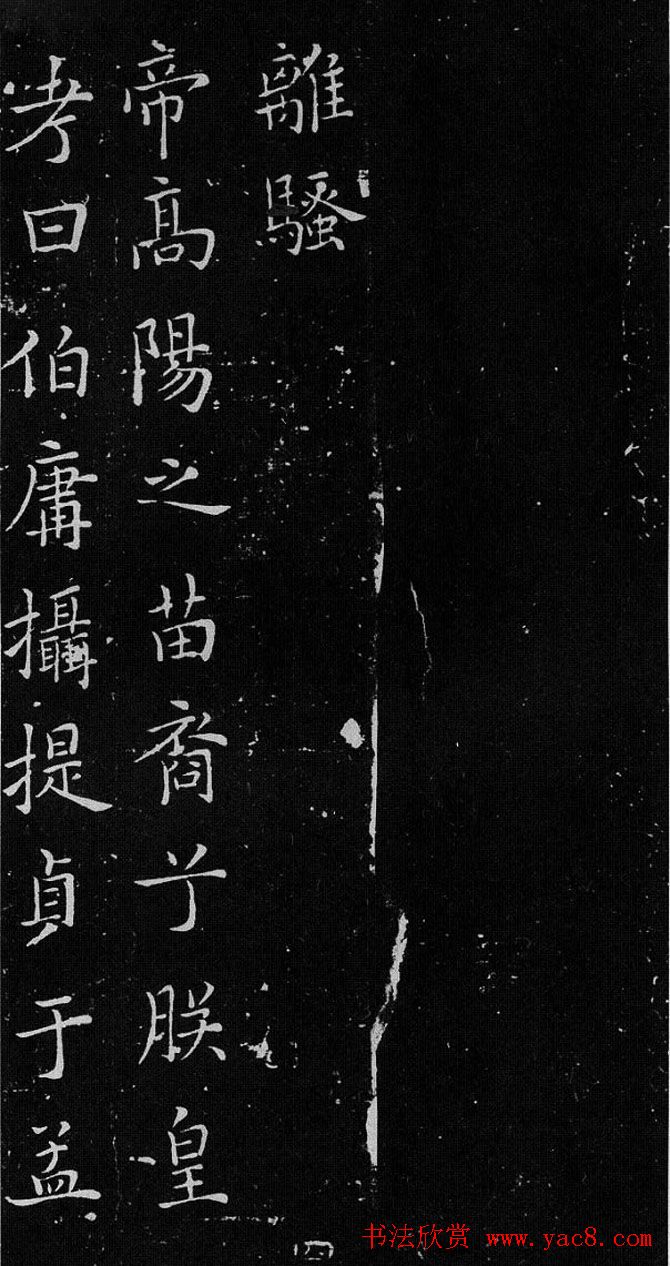 離騷
帝高陽之苗裔兮朕皇
考曰伯庸攝提貞于孟
书法欣赏 www.yac8.com